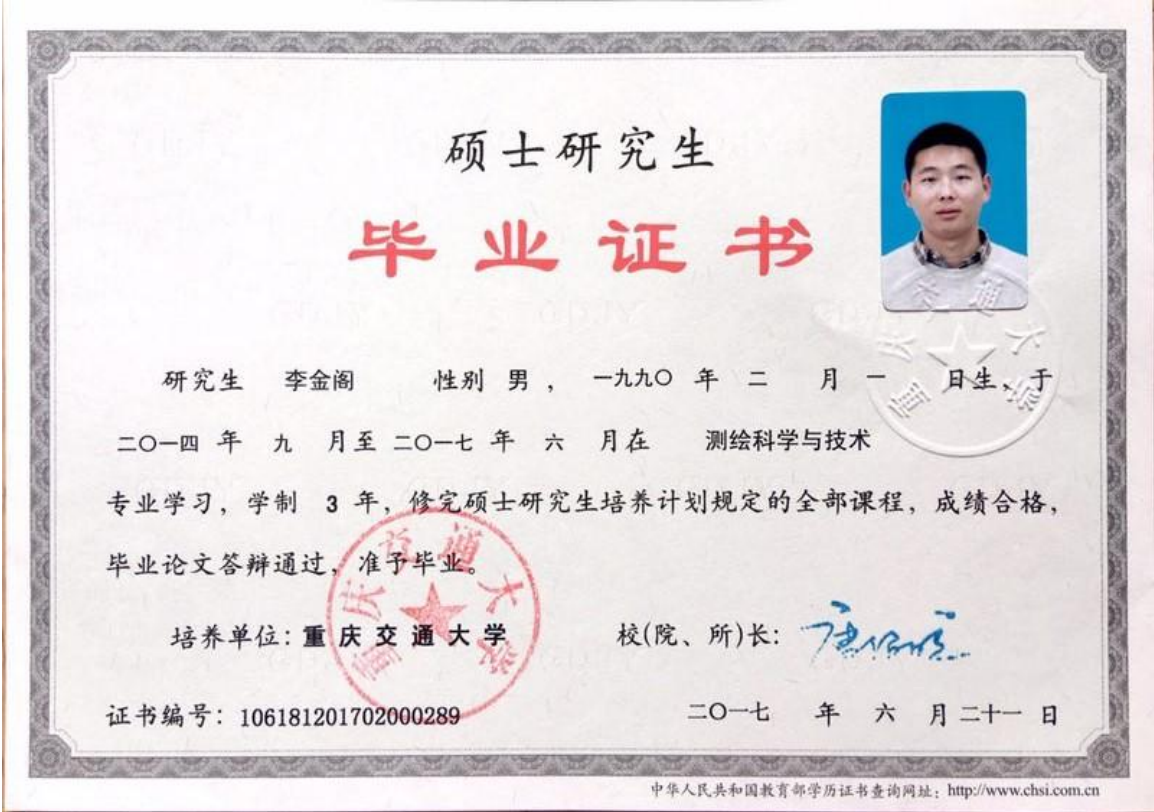 硕士研究生
毕业证书
研究生 李金阁 性别 男 ， 一九九〇 年 二 月 一 日生，于
二〇一四 年 九 月至 二〇一七 年 六 月在 测绘科学与技术
专业学习，学制 3 年，修完硕士研究生培养计划规定的全部课程，成绩合格，
毕业论文答辩通过，准予毕业。
培养单位：重庆交通大学
校(院、所)长：
证书编号：106181201702000289
二〇一七 年 六 月 二十一 日
重庆交通大学
重庆交通大学
中华人民共和国教育部学历证书查询网址：http://www.chsi.com.cn